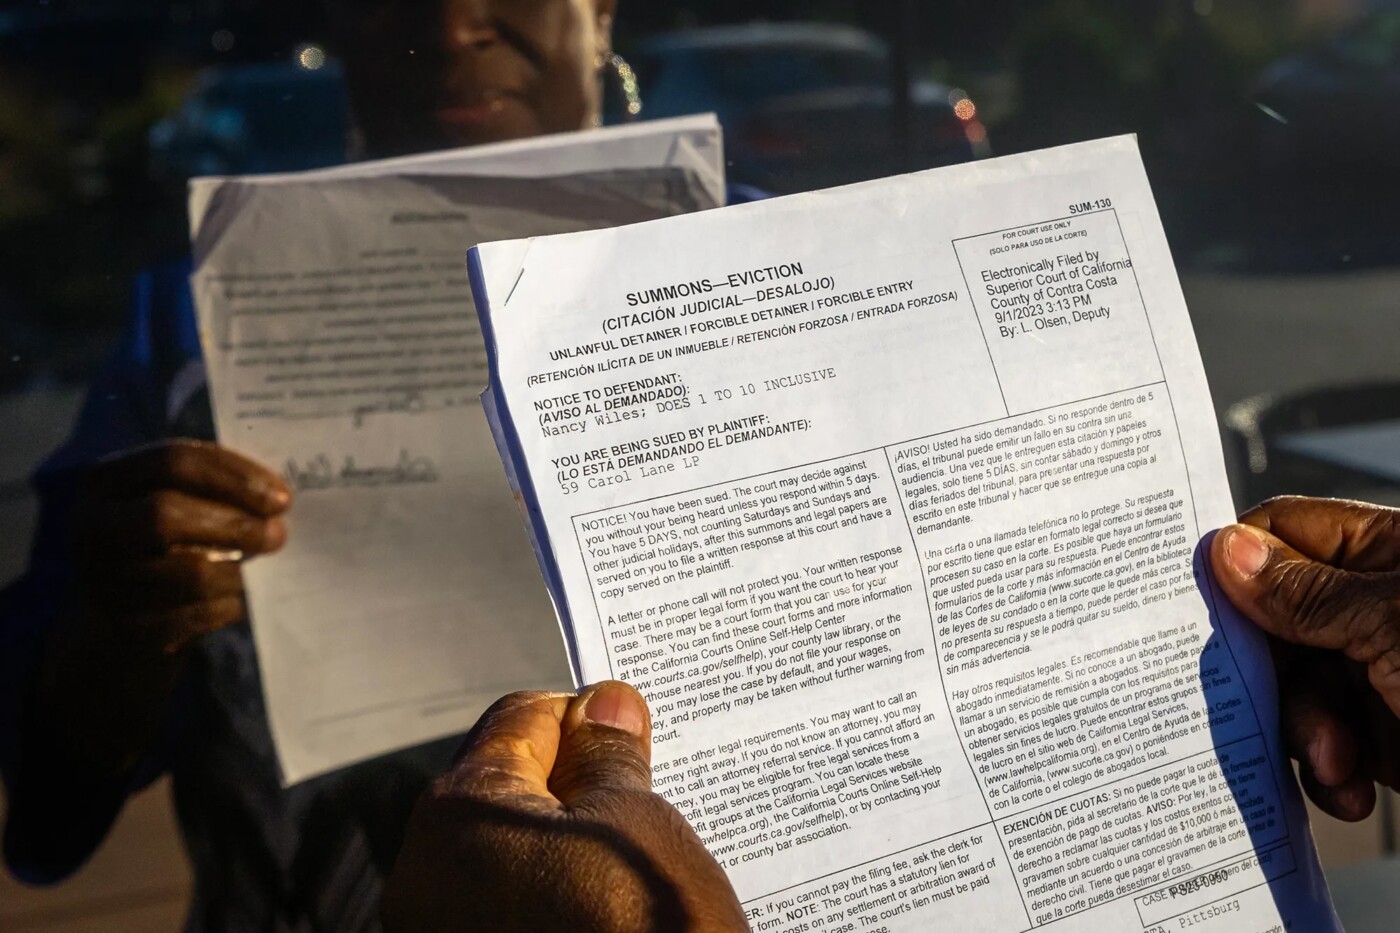 SUM-130
SUMMONS—EVICTION
(CITACIÓN JUDICIAL—DESALOJO)
UNLAWFUL DETAINER / FORCIBLE DETAINER / FORCIBLE ENTRY
(RETENCIÓN ILÍCITA DE UN INMUEBLE / RETENCIÓN FORZOSA / ENTRADA FORZOSA)
FOR COURT USE ONLY
(SOLO PARA USO DE LA CORTE)
Electronically Filed by
Superior Court of California
County of Contra Costa
9/1/2023 3:13 PM
By: L. Olsen, Deputy
NOTICE TO DEFENDANT:
(AVISO AL DEMANDADO):
Nancy Wiles; DOES 1 TO 10 INCLUSIVE
YOU ARE BEING SUED BY PLAINTIFF:
(LO ESTÁ DEMANDANDO EL DEMANDANTE):
59 Carol Lane LP
NOTICE! You have been sued. The court may decide against
you without your being heard unless you respond within 5 days.
You have 5 DAYS, not counting Saturdays and Sundays and
other judicial holidays, after this summons and legal papers are
served on you to file a written response at this court and have a
copy served on the plaintiff.
A letter or phone call will not protect you. Your written response
must be in proper legal form if you want the court to hear your
case. There may be a court form that you can use for your
response. You can find these court forms and more information
at the California Courts Online Self-Help Center
www.courts.ca.gov/selfhelp), your county law library, or the
rthouse nearest you. If you do not file your response on
, you may lose the case by default, and your wages,
ey, and property may be taken without further warning from
court.
ere are other legal requirements. You may want to call an
torney right away. If you do not know an attorney, you may
nt to call an attorney referral service. If you cannot afford an
rney, you may be eligible for free legal services from a
rofit legal services program. You can locate these
fit groups at the California Legal Services website
awhelpca.org), the California Courts Online Self-Help
www.courts.ca.gov/selfhelp), or by contacting your
rt or county bar association.
ER: If you cannot pay the filing fee, ask the clerk for
form. NOTE: The court has a statutory lien for
costs on any settlement or arbitration award of
il case. The court's lien must be paid
case.
¡AVISO! Usted ha sido demandado. Si no responde dentro de 5
días, el tribunal puede emitir un fallo en su contra sin una
audiencia. Una vez que le entreguen esta citación y papeles
legales, solo tiene 5 DÍAS, sin contar sábado y domingo y otros
días feriados del tribunal, para presentar una respuesta por
escrito en este tribunal y hacer que se entregue una copia al
demandante.
Una carta o una llamada telefónica no lo protege. Su respuesta
por escrito tiene que estar en formato legal correcto si desea que
procesen su caso en la corte. Es posible que haya un formulario
que usted pueda usar para su respuesta. Puede encontrar estos
formularios de la corte y más información en el Centro de Ayuda
de las Cortes de California (www.sucorte.ca.gov), en la biblioteca
de leyes de su condado o en la corte que le quede más cerca. Si
no presenta su respuesta a tiempo, puede perder el caso por falta
de comparecencia y se le podrá quitar su sueldo, dinero y bienes
sin más advertencia.
Hay otros requisitos legales. Es recomendable que llame a un
abogado inmediatamente. Si no conoce a un abogado, puede
llamar a un servicio de remisión a abogados. Si no puede pagar a
un abogado, es posible que cumpla con los requisitos para
obtener servicios legales gratuitos de un programa de servicios
legales sin fines de lucro. Puede encontrar estos grupos sin fines
de lucro en el sitio web de California Legal Services,
(www.lawhelpcalifornia.org), en el Centro de Ayuda de las Cortes
de California, (www.sucorte.ca.gov) o poniéndose en contacto
con la corte o el colegio de abogados local.
EXENCIÓN DE CUOTAS: Si no puede pagar la cuota de
presentación, pida al secretario de la corte que le dé un formulario
de exención de pago de cuotas. AVISO: Por ley, la corte tiene
derecho a reclamar las cuotas y los costos exentos con un
gravamen sobre cualquier cantidad de $10,000 ó más recibida
mediante un acuerdo o una concesión de arbitraje en un caso de
derecho civil. Tiene que pagar el gravamen de la corte antes de
que la corte pueda desestimar el caso.
CASE
PS23-0950
TA, Pittsburg